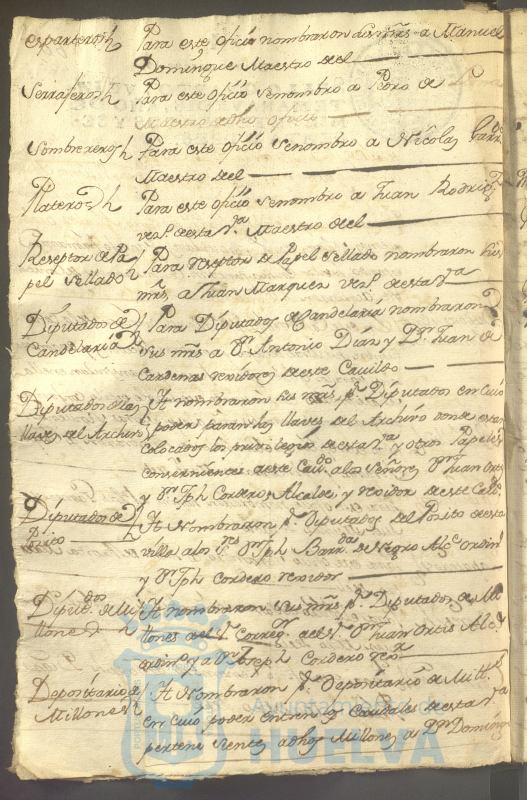 esparteros Para este oficio nombraron sus mrs. a Manuel
Dominguez Maestro del
Serrageros Para este oficio se nombro a Pedro de
Maestro de dho oficio
Sombrereros Para este oficio se nombro a Nicolas
Maestro del
Plateros Para este oficio se nombro a Juan Rodrig.
vez.º de esta v.ª Maestro del
Reseptor de Pa Para reseptor de Papel sellado nombraron sus
pel sellado mrs. a Juan Marquez vez.º de esta v.ª
Diputados de Para Diputados de Candelaria nombraron
Candelaria sus mrs a D.n Antonio Dias y D.n Juan de
Cardenas rexidores de este Cavildo
Diputados de las It nombraron sus mrs. p.r Diputados en cuio
llaves del Archivo poder paran las llaves del Archivo donde estan
colocados los privilegios de esta v.ª y otros Papeles
consernientes a este Cav.do a los Señores D.n Juan Ortis
y D.n Jph Cordero Alcalde y rexidor de este Cab.do
Diputados de It Nombraron p.r Diputados del Posito de esta
Posito villa a los S.res D.n Jph de Negro Alc.e ordin.º
y D.n Jph Cordero rexidor
Diput.dos de Mi It nombraron sus mrs p.r Diputados de Mi
llones llones del S.r Correg.r al S.r D.n Juan Ortis Alc.e
ordin.º y a D.n Joseph Cordero rex.r
Depositario de It Nombraron p.r Depositario de Mill.s
Millones en cuio poder entren los Caudales de esta v.ª
pertenesientes a dhos Millones a D.n Domingo
Ayuntamiento de
HUELVA